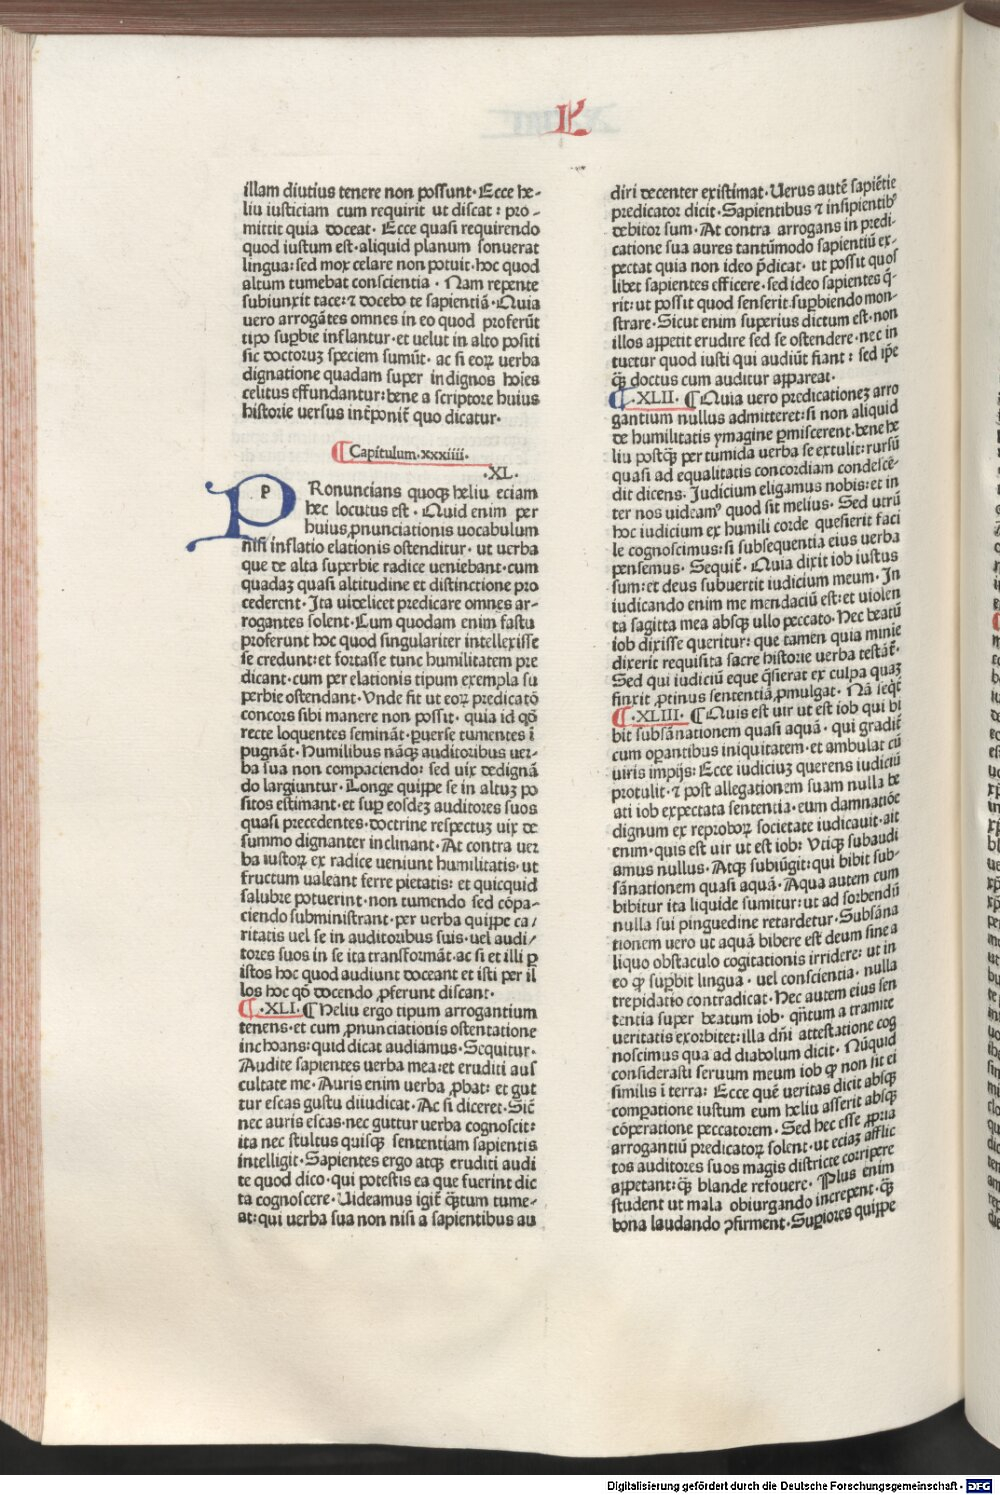 L
illam diutius tenere non possunt· Ecce he-
liu iusticiam cum requirit ut discat : pro-
mittit quia doceat· Ecce quasi requirendo
quod iustum est· aliquid planum sonuerat
lingua: sed mox celare non potuit· hoc quod
altum tumebat conscientia · Nam repente
subiunxit tace: ⁊ docebo te sapientiā· Quia
uero arrogātes omnes in eo quod proferūt
tipo supbie inflantur· et uelut in alto positi
sic doctoruꝫ speciem sumūt· ac si eoꝝ uerba
dignatione quadam super indignos hoīes
celitus effundantur: bene a scriptore huius
historie uersus int̄poniť quo dicatur·
¶ Capitulum· xxxiiii·
·XL·
PRonuncians quoqꝫ heliu eciam
hec locutus est · Quid enim per
huius ꝓnunciationis uocabulum
nisi inflatio elationis ostenditur· ut uerba
que de alta superbie radice ueniebant· cum
quadaꝫ quasi altitudine et distinctione pro
cederent· Ita uidelicet predicare omnes ar-
rogantes solent· Cum quodam enim fastu
proferunt hoc quod singulariter intellexisse
se credunt: et fortasse tunc humilitatem pre
dicant· cum per elationis tipum exempla su
perbie ostendant· Vnde fit ut eoꝝ predicatō
concors sibi manere non possit· quia id qō
recte loquentes semināt· ꝑuerse tumentes ī
pugnāt· Humilibus nāqꝫ auditoribus uer-
ba sua non compaciendo: sed uix dedignā
do largiuntur· Longe quippe se in altuꝫ po
sitos estimant· et suꝑ eosdeꝫ auditores suos
quasi precedentes· doctrine respectuꝫ uix de
summo dignanter inclinant· At contra uer
ba iustoꝝ ex radice ueniunt humilitatis· ut
fructum ualeant ferre pietatis: et quicquid
salubre potuerint· non tumendo sed cōpa-
ciendo subministrant· per uerba quippe ca/
ritatis uel se in auditoribus suis· uel audi/
tores suos in se ita transformāt· ac si et illi ꝑ
istos hoc quod audiunt doceant et isti per il
los hoc qō docendo ꝓferunt discant·
¶ ·XLI· ¶ Heliu ergo tipum arrogantium
tenens· et cum ꝓnunciationis ostentatione
inchoans: quid dicat audiamus· Sequitur·
Audite sapientes uerba mea: et eruditi aus
cultate me· Auris enim uerba ꝓbat: et gut
tur escas gustu diiudicat· Ac si diceret· Sic̄
nec auris escas· nec guttur uerba cognoscit:
ita nec stultus quisqꝫ sententiam sapientis
intelligit· Sapientes ergo atqꝫ eruditi audi
te quod dico· qui potestis ea que fuerint dic
ta cognoscere· Uideamus igiť qꝫtum tume-
at: qui uerba sua non nisi a sapientibus au
diri decenter existimat· Uerus autē sapiētie
predicator dicit· Sapientibus ⁊ insipientibꝰ
debitor sum· At contra arrogans in predi-
catione sua aures tantūmodo sapientiū ex-
pectat quia non ideo p̄dicat· ut possit quos
libet sapientes efficere· sed ideo sapientes q̄-
rit: ut possit quod senserit supbiendo mon-
strare· Sicut enim superius dictum est· non
illos appetit erudire sed se ostendere· nec in
tuetur quod iusti qui audiūt fiant : sed ip̄e
qꝫ doctus cum auditur appareat·
¶ ·XLII· ¶ Quia uero predicationeꝫ arro
gantium nullus admitteret: si non aliquid
de humilitatis ymagine ꝑmiscerent· bene he
liu postqꝫ per tumida uerba se extulit: rursū
quasi ad equalitatis concordiam condescē-
dit dicens· Iudicium eligamus nobis: et in
ter nos uideamꝰ quod sit melius· Sed utrū
hoc iudicium ex humili corde quesierit faci
le cognoscimus: si subsequentia eius uerba
pensemus· Sequiť· Quia dixit iob iustus
sum: et deus subuertit iudicium meum· In
iudicando enim me mendaciū est: et uiolen
ta sagitta mea absqꝫ ullo peccato· Hec beatū
iob dixisse queritur: que tamen quia minie
dixerit requisita sacre historie uerba testāť·
Sed qui iudiciū eque q̄sierat ex culpa quaꝫ
finxit ꝓtinus sententiā ꝓmulgat· Nā seqť
¶ ·XLIII· ¶ Quis est uir ut est iob qui bi
bit subsānationem quasi aquā· qui gradiť
cum oꝑantibus iniquitatem· et ambulat cū
uiris impijs: Ecce iudiciuꝫ querens iudiciū
protulit· ⁊ post allegationem suam nulla be
ati iob expectata sententia· eum damnatiōe
dignum ex reproboꝝ societate iudicauit· ait
enim· quis est uir ut est iob: Vtiqꝫ subaudi
amus nullus· Atqꝫ subiūgit: qui bibit sub-
sānationem quasi aquā· Aqua autem cum
bibitur ita liquide sumitur: ut ad sorbendū
nulla sui pinguedine retardetur· Subsāna
tionem uero ut aquā bibere est deum sine a
liquo obstaculo cogitationis irridere: ut in
eo ꝙ supbit lingua · uel conscientia· nulla
trepidatio contradicat· Hec autem eius sen
tentia super beatum iob· qn̄tum a tramite
ueritatis exorbitet: illa dn̄i attestatione cog
noscimus qua ad diabolum dicit· Nūquid
considerasti seruum meum iob ꝙ non sit ei
similis ī terra: Ecce quē ueritas dicit absqꝫ
compatione iustum eum heliu asserit absqꝫ
cōperatione peccatorem· Sed hec esse ꝓpria
arrogantiū predicatoꝝ solent· ut eciaꝫ afflic
tos auditores suos magis districte corripere
appetant: qꝫ blande refouere· Plus enim
student ut mala obiurgando increpent· qꝫ
bona laudando ꝯfirment· Supiores quippe
Digitalisierung gefördert durch die Deutsche Forschungsgemeinschaft - DFG